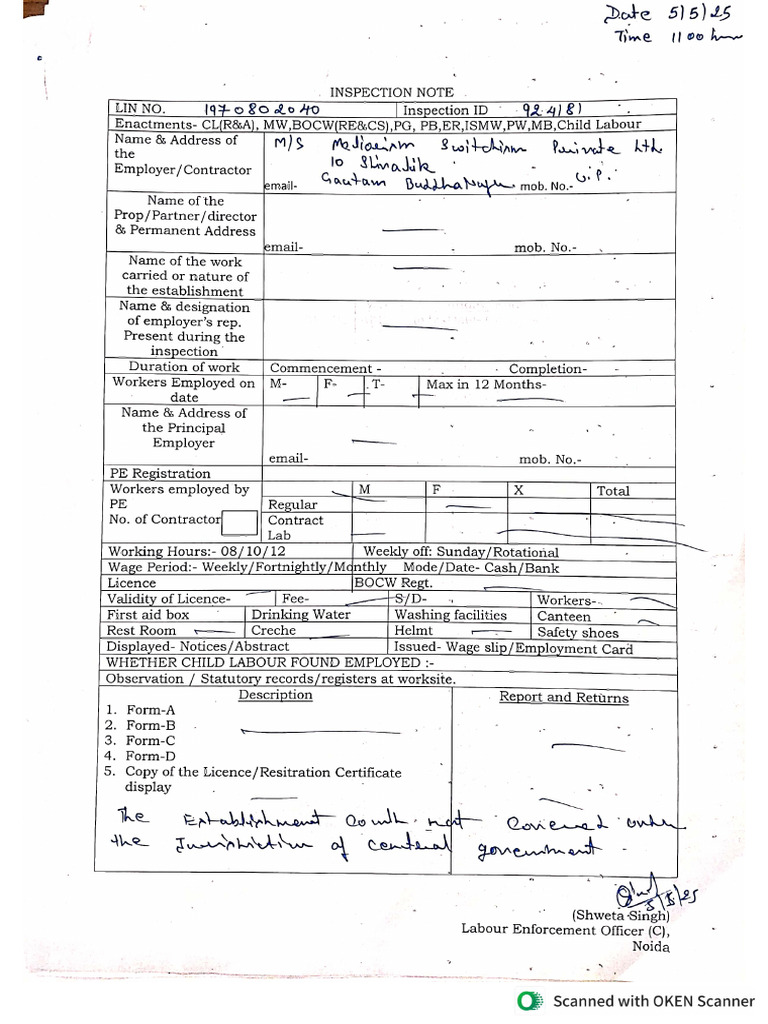 Date 5/5/25
Time 1100 hrs
INSPECTION NOTE
LIN NO. 1970802040 Inspection ID 924181
Enactments- CL(R&A), MW,BOCW(RE&CS),PG, PB,ER,ISMW,PW,MB,Child Labour
Name & Address of the Employer/Contractor
M/S Private Ltd
10
Gautam Buddha Nagar U.P.
email- mob. No.-
Name of the Prop/Partner/director & Permanent Address
email- mob. No.-
Name of the work carried or nature of the establishment
Name & designation of employer's rep. Present during the inspection
Duration of work Commencement - Completion-
Workers Employed on date M- F- T- Max in 12 Months-
Name & Address of the Principal Employer
email- mob. No.-
PE Registration
Workers employed by PE M F X Total
Regular
No. of Contractor Contract Lab
Working Hours:- 08/10/12 Weekly off: Sunday/Rotational
Wage Period:- Weekly/Fortnightly/Monthly Mode/Date- Cash/Bank
Licence BOCW Regt.
Validity of Licence- Fee- S/D- Workers-
First aid box Drinking Water Washing facilities Canteen
Rest Room Creche Helmt Safety shoes
Displayed- Notices/Abstract Issued- Wage slip/Employment Card
WHETHER CHILD LABOUR FOUND EMPLOYED :-
Observation / Statutory records/registers at worksite.
Description Report and Returns
1. Form-A
2. Form-B
3. Form-C
4. Form-D
5. Copy of the Licence/Resitration Certificate display
The Establishment not covered under
the Jurisdiction of central government
5/5/25
(Shweta Singh)
Labour Enforcement Officer (C),
Noida
Scanned with OKEN Scanner